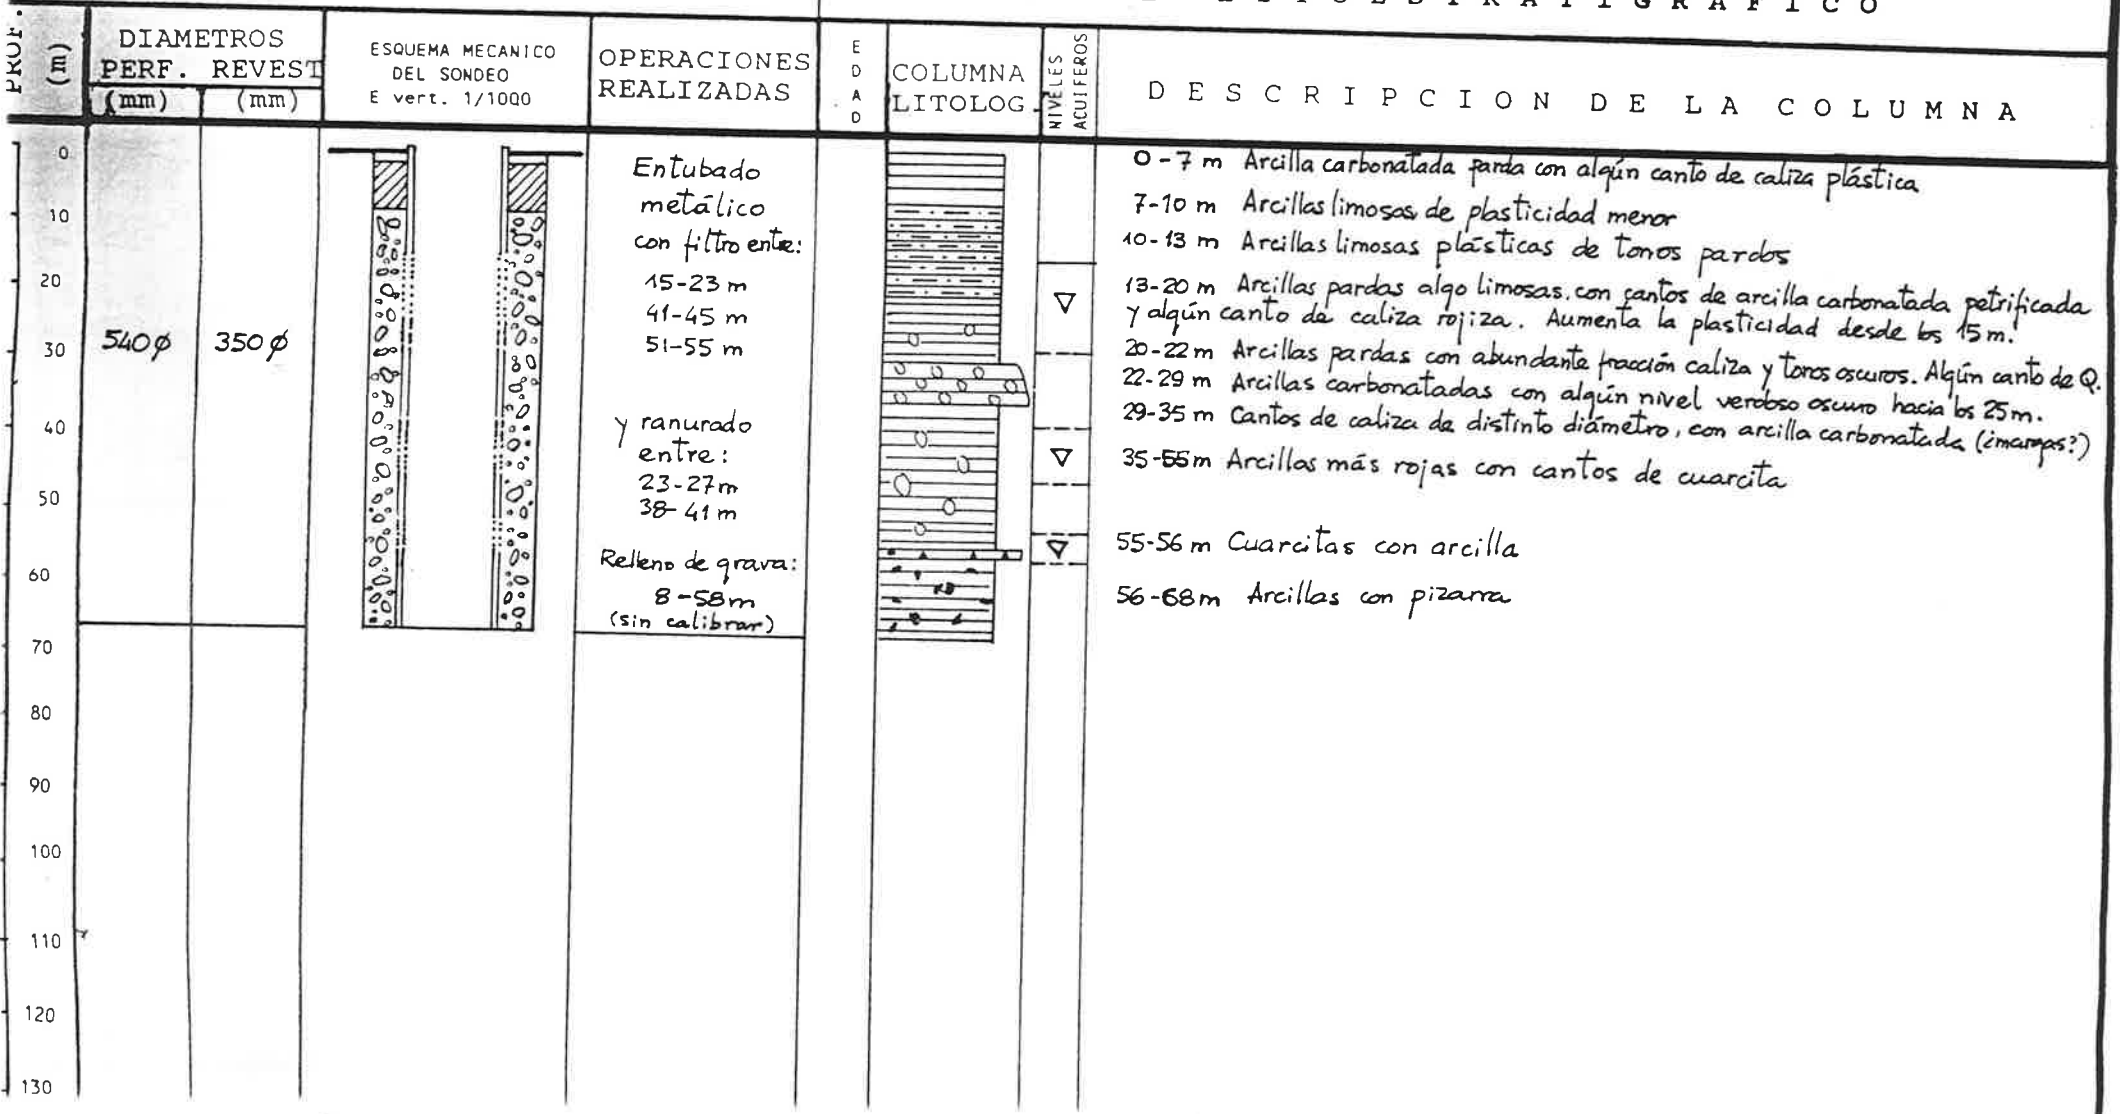 PROF. (m)
DIAMETROS
PERF. REVEST
(mm) (mm)
ESQUEMA MECANICO
DEL SONDEO
E vert. 1/1000
OPERACIONES
REALIZADAS
EDAD
COLUMNA
LITOLOG.
NIVELES
ACUIFEROS
DESCRIPCION DE LA COLUMNA
0
10
20
30
40
50
60
70
80
90
100
110
120
130
540 ϕ
350 ϕ
Entubado
metálico
con filtro entre:
15-23 m
41-45 m
51-55 m
y ranurado
entre:
23-27m
38-41 m
Relleno de grava:
8-58m
(sin calibrar)
0-7 m Arcilla carbonatada parda con algún canto de caliza plástica
7-10 m Arcillas limosas de plasticidad menor
10-13 m Arcillas limosas plásticas de tonos pardos
13-20 m Arcillas pardas algo limosas, con cantos de arcilla carbonatada petrificada
y algún canto de caliza rojiza. Aumenta la plasticidad desde los 15m.
20-22m Arcillas pardas con abundante fracción caliza y tonos oscuros. Algún canto de Q.
22-29 m Arcillas carbonatadas con algún nivel verdoso oscuro hacia los 25m.
29-35 m Cantos de caliza de distinto diámetro, con arcilla carbonatada (¿margas?)
35-55m Arcillas más rojas con cantos de cuarcita
55-56 m Cuarcitas con arcilla
56-68m Arcillas con pizarra